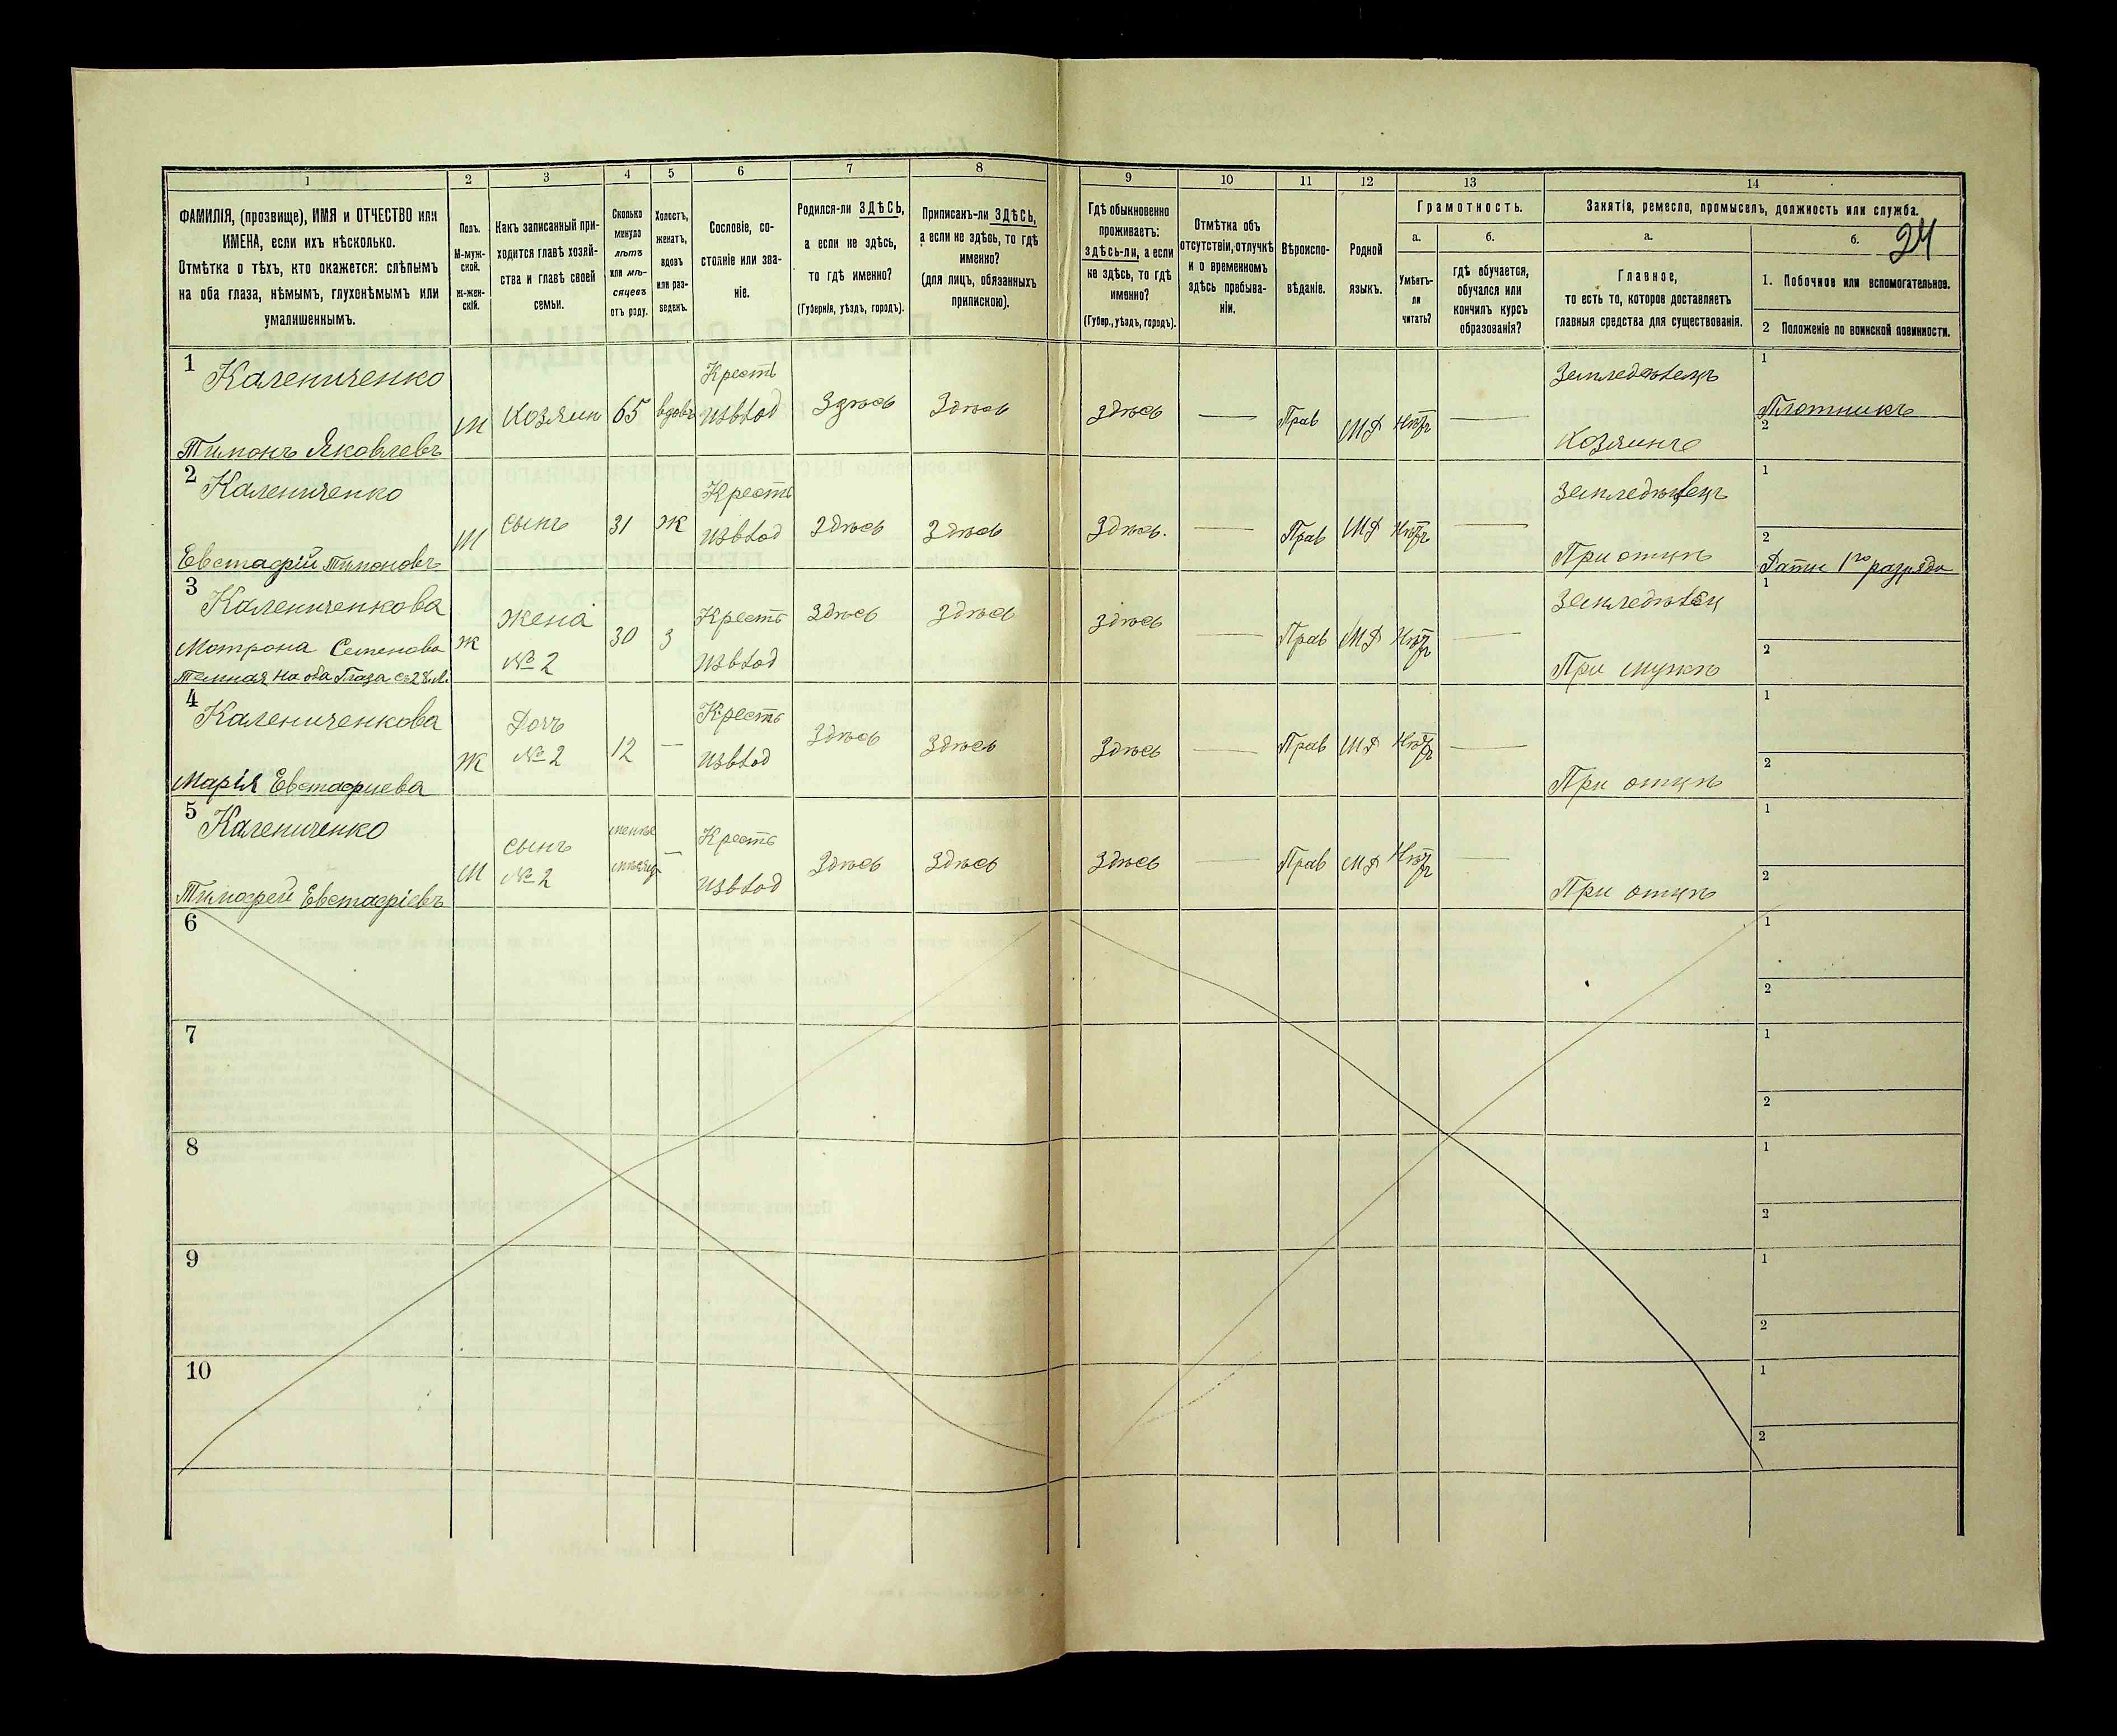 1
2
3
4
5
6
7
8
ФАМИЛІЯ, (прозвище), ИМЯ и ОТЧЕСТВО или
ИМЕНА, если ихъ нѣсколько.
Отмѣтка о тѣхъ, кто окажется: слѣпымъ
на оба глаза, нѣмымъ, глухонѣмымъ или
умалишеннымъ.
Полъ.
М-муж-
ской.
Ж-жен-
скій.
Какъ записанный при-
ходится главѣ хозяй-
ства и главѣ своей
семьи.
Сколько
минуло
лѣтъ
или мѣ-
сяцевъ
отъ роду.
Холостъ,
женатъ,
вдовъ
или раз-
веденъ.
Сословіе, со-
стояніе или зва-
ніе.
Родился-ли ЗДѢСЬ,
а если не здѣсь,
то гдѣ именно?
(Губернія, уѣздъ, городъ).
Приписанъ-ли ЗДѢСЬ,
а если не здѣсь, то гдѣ
именно?
(для лицъ, обязанныхъ
припискою).
9
10
11
12
13
14
Гдѣ обыкновенно
проживаетъ:
здѣсь-ли, а если
не здѣсь, то гдѣ
именно?
(Губер., уѣздъ, городъ).
Отмѣтка объ
отсутствіи, отлучкѣ
и о временномъ
здѣсь пребыва-
ніи.
Вѣроиспо-
вѣданіе.
Родной
языкъ.
Грамотность.
а.
Умѣетъ-
ли
читать?
б.
гдѣ обучается,
обучался или
кончилъ курсъ
образованія?
Занятія, ремесло, промыселъ, должность или служба.
а.
Главное,
то есть то, которое доставляетъ
главныя средства для существованія.
б.
24
1. Побочное или вспомогательное.
2 Положеніе по воинской повинности.
1
Калениченко
Тимонъ Яковлевъ
М
Хозяин
65
вдовъ
Крестъ
изъ
Здѣсь
Здѣсь
Здѣсь
—
Прав
—
Земледѣлецъ
Хозяинъ
1
Плотникъ
2
2
Калениченко
Евстафій Тимоновъ
М
сынъ
31
Ж
Крестъ
Здѣсь
Здѣсь
Здѣсь.
—
Прав
—
Земледѣлецъ
При отцѣ
1
2
Ратн 1го разряда
3
Калениченкова
Мотрона Семенова
Темная на оба Глаза съ 28 л.
Ж
Жена
№ 2
30
З
Крестъ
Здѣсь
Здѣсь
Здѣсь
—
Прав
—
Земледѣлец
При мужѣ
1
2
4
Калениченкова
Марія Евстафиева
Ж
Дочъ
№ 2
12
—
Крестъ
Здѣсь
Здѣсь
Здѣсь
—
Прав
—
При отцѣ
1
2
5
Калениченко
Тимофей Евстафіевъ
М
сынъ
№ 2
—
Крестъ
Здѣсь
Здѣсь
Здѣсь
—
Прав
—
При отцѣ
1
2
6
1
2
7
1
2
8
1
2
9
1
2
10
1
2